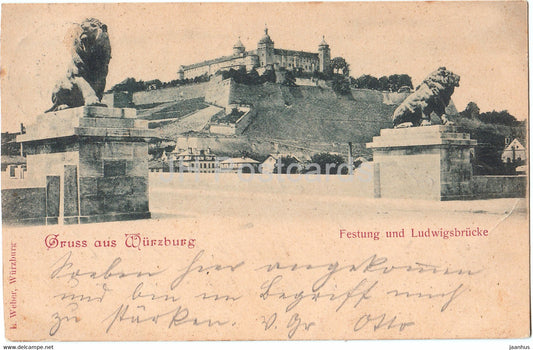 Gruss aus Würzburg
Festung und Ludwigsbrücke
Soeben hier angekommen
und bin im Begriff mich
zu stärken. V. Gr Otto
K. Weber, Würzburg
jaanhus